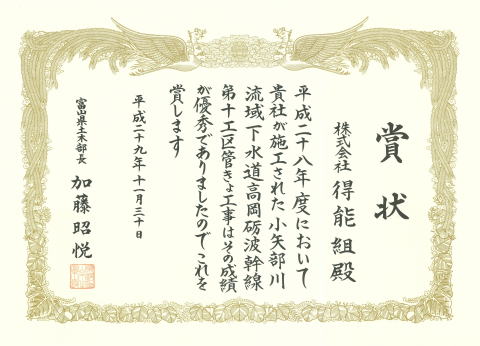 賞状
株式会社 得能組殿
平成二十八年度において
貴社が施工された小矢部川
流域下水道高岡砺波幹線
第十工区管きょ工事はその成績
が優秀でありましたのでこれを
賞します
平成二十九年十一月三十日
富山県土木部長 加藤昭悦